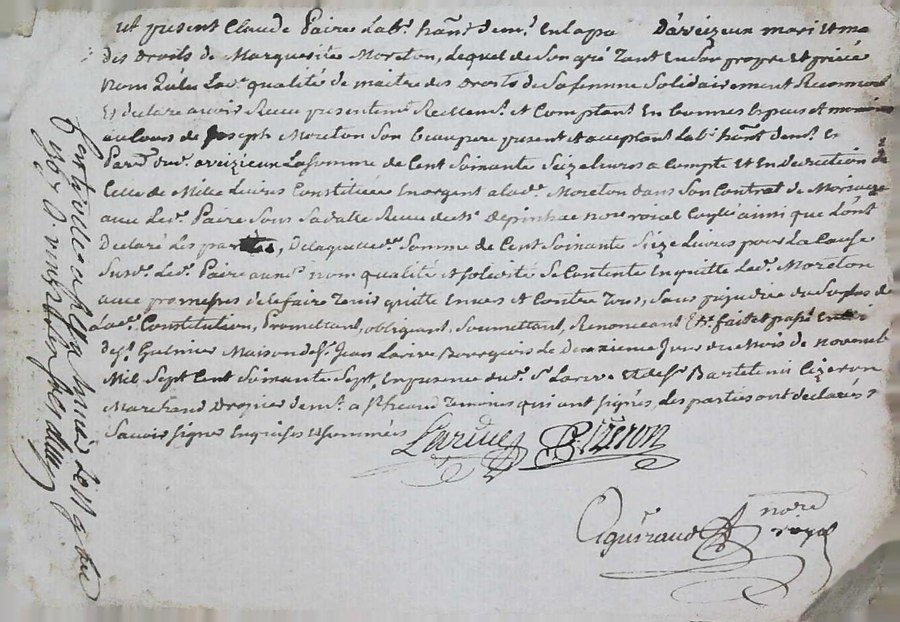 ut present Claude Paires Labr. hañt demt. En la pa Daveizeux mari et me
des droits de Marguerite Moreton, Lequel de Son gré Tant En Son propre et privé
Nom qu'en Lade. qualité de maitre des Droits de Sa femme Solidairement Reconnoit
Et declare avoir Receu presentemt. Reellemt. et Comptant En bonnes Especes et
au Cours de Joseph Moreton Son beaupere present et acceptant Labr. hañt demt. Et
Parse. dud. aveizieux La Somme de Cent Soixante Seize Livres a Compte Et En deduction de
Celle de Mille Livres Constituée En argent a lade. Moreton dans Son Contrat de Mariage
avec Led. Paire Sous Sa datte Receu de Me. Depinhac nore roial Coglé ainsi que L'ont
Declaré Les parties, De laquelle de. Somme de Cent Soixante Seize Livres pour La Cause
Susde. Led. Paire aux ds. nom qualité et Solidité Se Contente En quitte Led. Moreton
avec promesses de le faire Tenir quitte Envers et Contre Tous, Sans prejudice du Surplus de
Lade. Constitution, Promettant, obligeant, Soumettant, Renonceant &a. fait et passé
de St. Galmier Maison de Sr. Jean Larive Bourgeois Le Douzieme Jour du Mois de novemb
Mil Sept Cent Soixante Sept, En presence dud. Sr. Larive Et de Sr. Bartelemi Cizeron
Marchand Drapier demt. a St. heand Temoins qui ont Signés, Les parties ont declarés
Savoir Signer Enquises et Sommées
Larive Cizeron
nore
royal